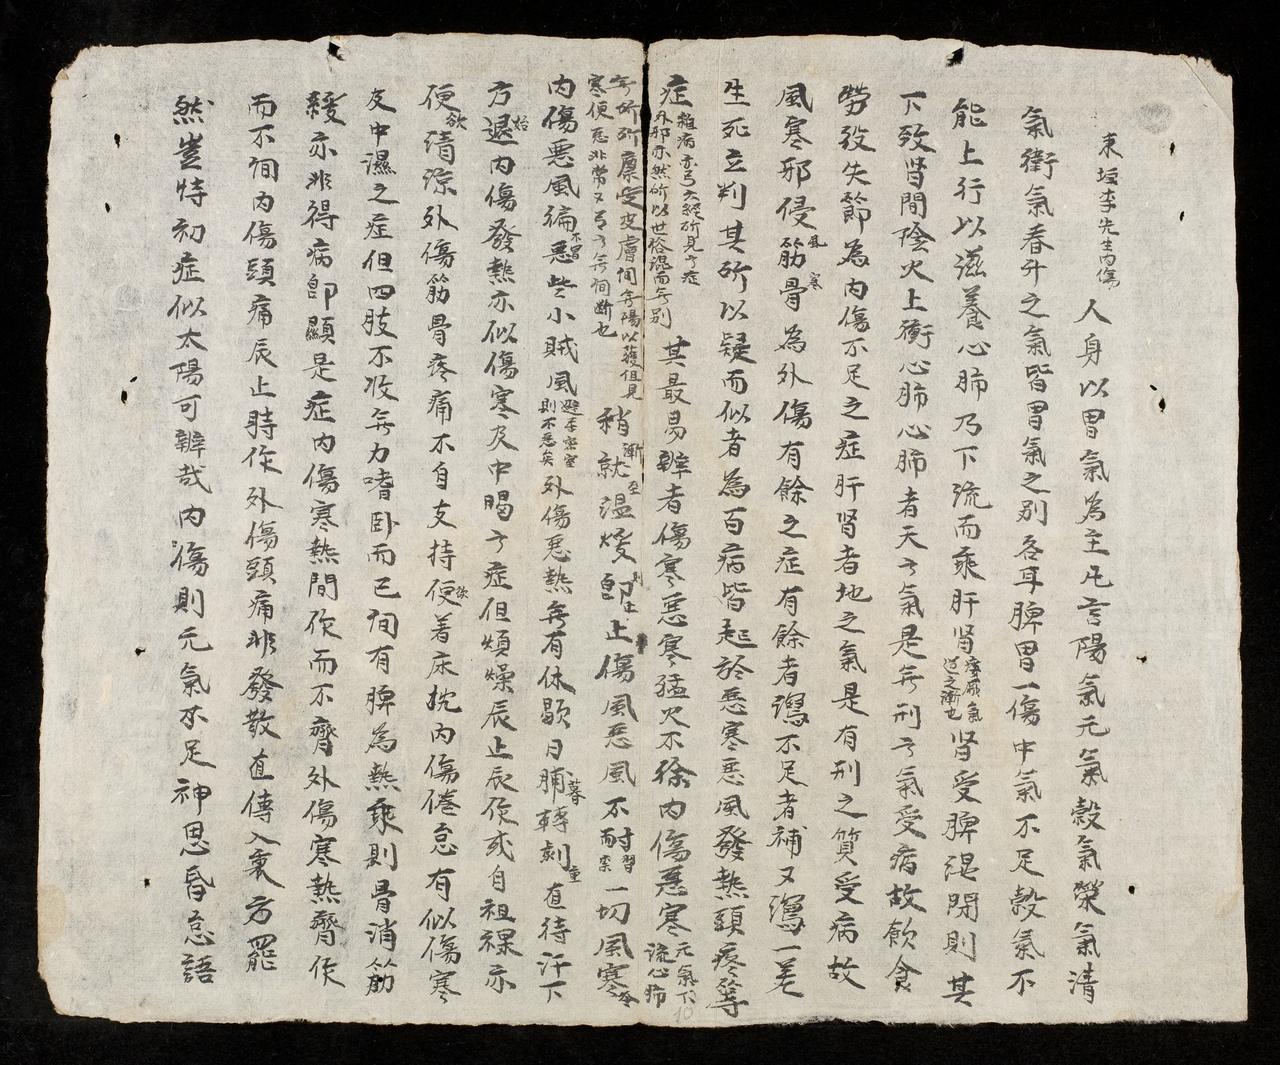 東垣李先生内傷 人身以胃氣為主凡言陽氣元氣穀氣榮氣清
氣衛氣春升之氣皆胃氣之别名耳脾胃一傷中氣不足穀氣不
能上行以滋養心肺乃下流而乘肝腎痿厥氣逆之漸也腎受脾湿閉則其
下致腎間陰火上衝心肺心肺者天之氣是無刑之氣受病故飲食
勞役失節為内傷不足之症肝腎者地之氣是有刑之質受病故
風寒邪侵筋骨風寒為外傷有餘之症有餘者瀉不足者補又瀉一差
生死立判其所以疑而似者為百病皆起於悪寒悪風發熱頭疼等
症雜病亦与六經所見之症外邪亦然所以世俗混而無别 其最易辨者傷寒悪寒猛火不徐内傷悪寒元氣下流心肺
無所所禀受皮膚間無陽以護但見寒便悪非常又有之無間断也 稍漸就至温煖即則止上傷風悪風不耐一切風寒
内傷悪風偏不當悪些小賊風避居密室則不悪矣外傷悪熱無有休歇日晡暮轉剰重直待汗下
方退始内傷發熱亦似傷寒及中暍之症但煩燥辰止辰作或自袒裸亦
便欲清涼外傷筋骨疼痛不自支持便欲着床枕内傷倦怠有似傷寒
及中濕之症但四肢不收無力嗜卧而已間有脾為熱乘則骨消筋
緩亦非得病即顯是症内傷寒熱間作而不齊外傷寒熱齊作
而不間内傷頭痛辰止時作外傷頭痛非發散直傳入裏方罷
然豈特初症似太陽可辨哉内傷則元氣不足神思昏怠語